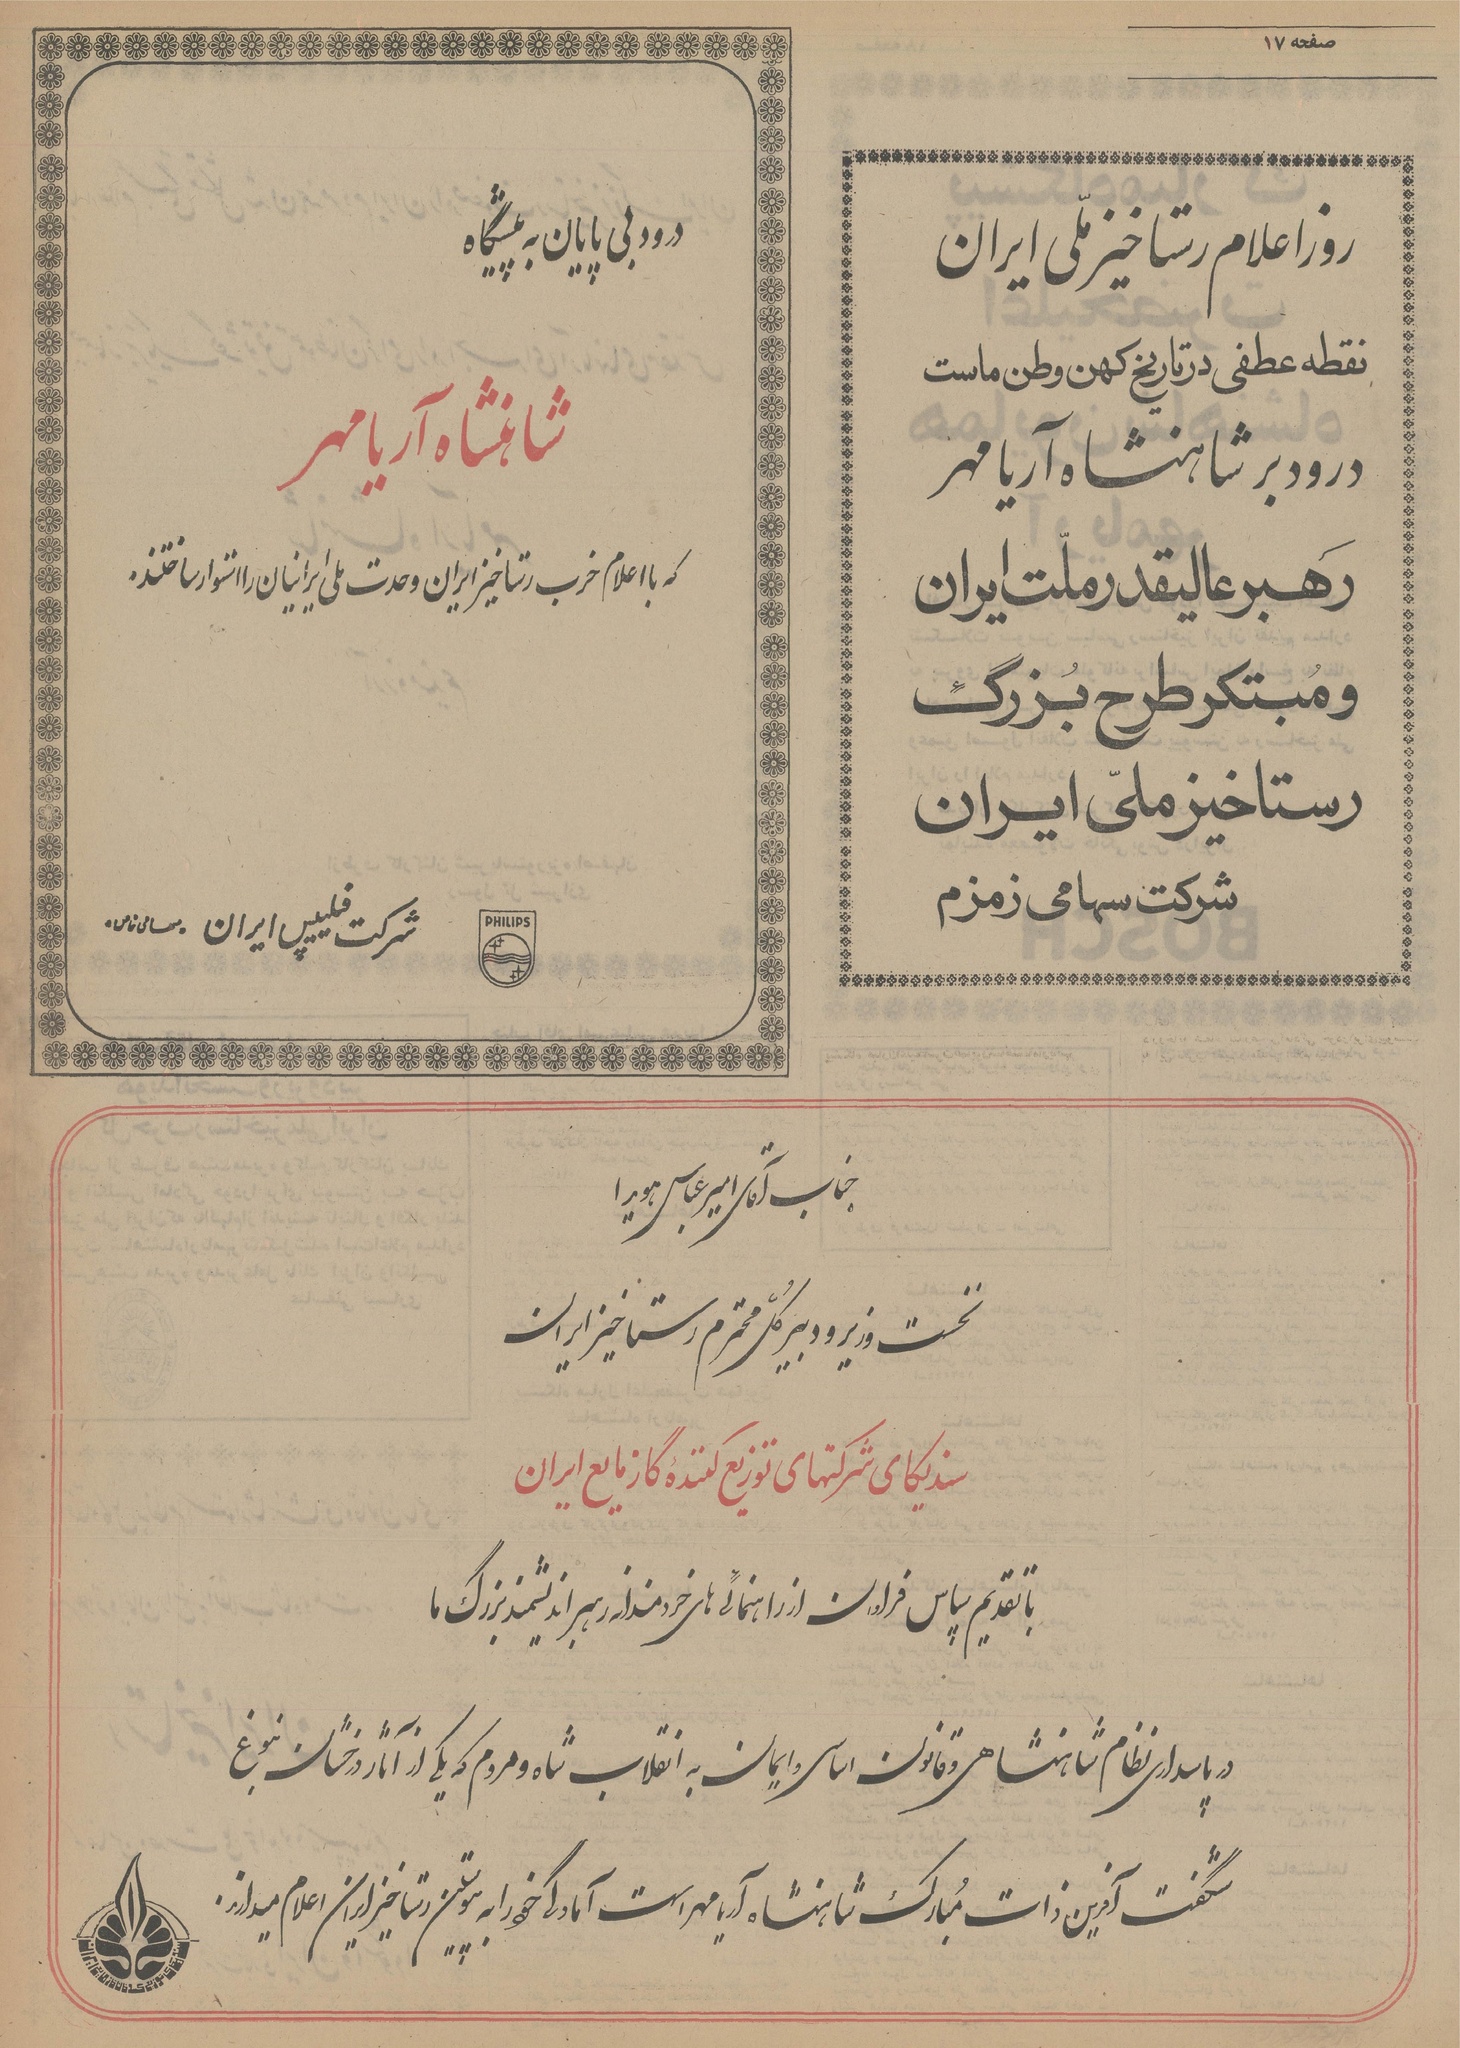 صفحه ۱۷
روز اعلام رستاخیز ملّی ایران
نقطه عطفی در تاریخ کهن وطن ماست
درود بر شاهنشاه آریامهر
رَهبر عالیقدر ملّت ایران
و مُبتکر طرح بُزرگ
رستاخیز ملیّ ایران
شرکت سهامی زمزم
درود بی پایان به پیشگاه
شاهنشاه آریامهر
که با اعلام حزب رستاخیز ایران وحدت ملی ایرانیان را استوار ساختند.
PHILIPS
شرکت فیلیپس ایران «سهامی خاص»
جناب آقای امیر عباس هویدا
نخست وزیر و دبیر کُلّ محترم رستاخیز ایران
سندیکای شرکتهای توزیع کنندهٔ گاز مایع ایران
با تقدیم سپاس فراوان از راهنمائی های خردمندانه رهبر اندیشمند بزرگ ما
در پاسداری نظام شاهنشاهی و قانون اساسی و ایمان به انقلاب شاه و مردم که یکی از آثار درخشان نبوغ
شگفت آفرین ذات مُبارک شاهنشاه آریامهر است آمادگی خود را به پیوستن رستاخیز ایران اعلام میدارد.